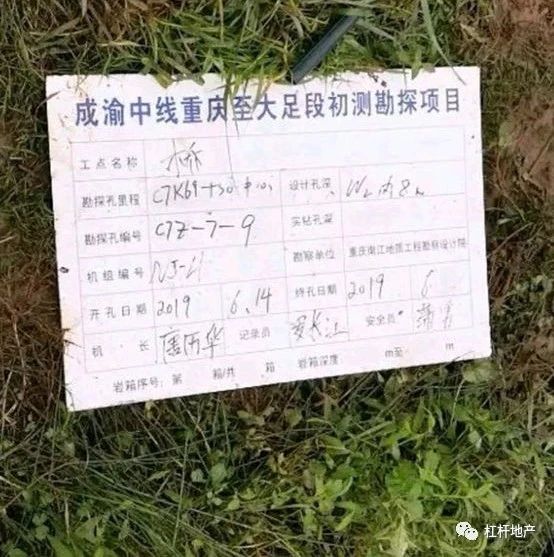 成渝中线重庆至大足段初测勘探项目
工点名称
勘探孔里程 C7K69+30 设计孔深
勘探孔编号 C7Z-7-9 实钻孔深
机组编号 NJ-4 勘察单位 重庆南江地质工程勘察设计院
开孔日期 2019 6.14 终孔日期 2019 6
机长 唐历华 记录员 罗长江 安全员
岩箱序号:第 箱/共 箱 岩箱深度 m至 m
杠杆地产